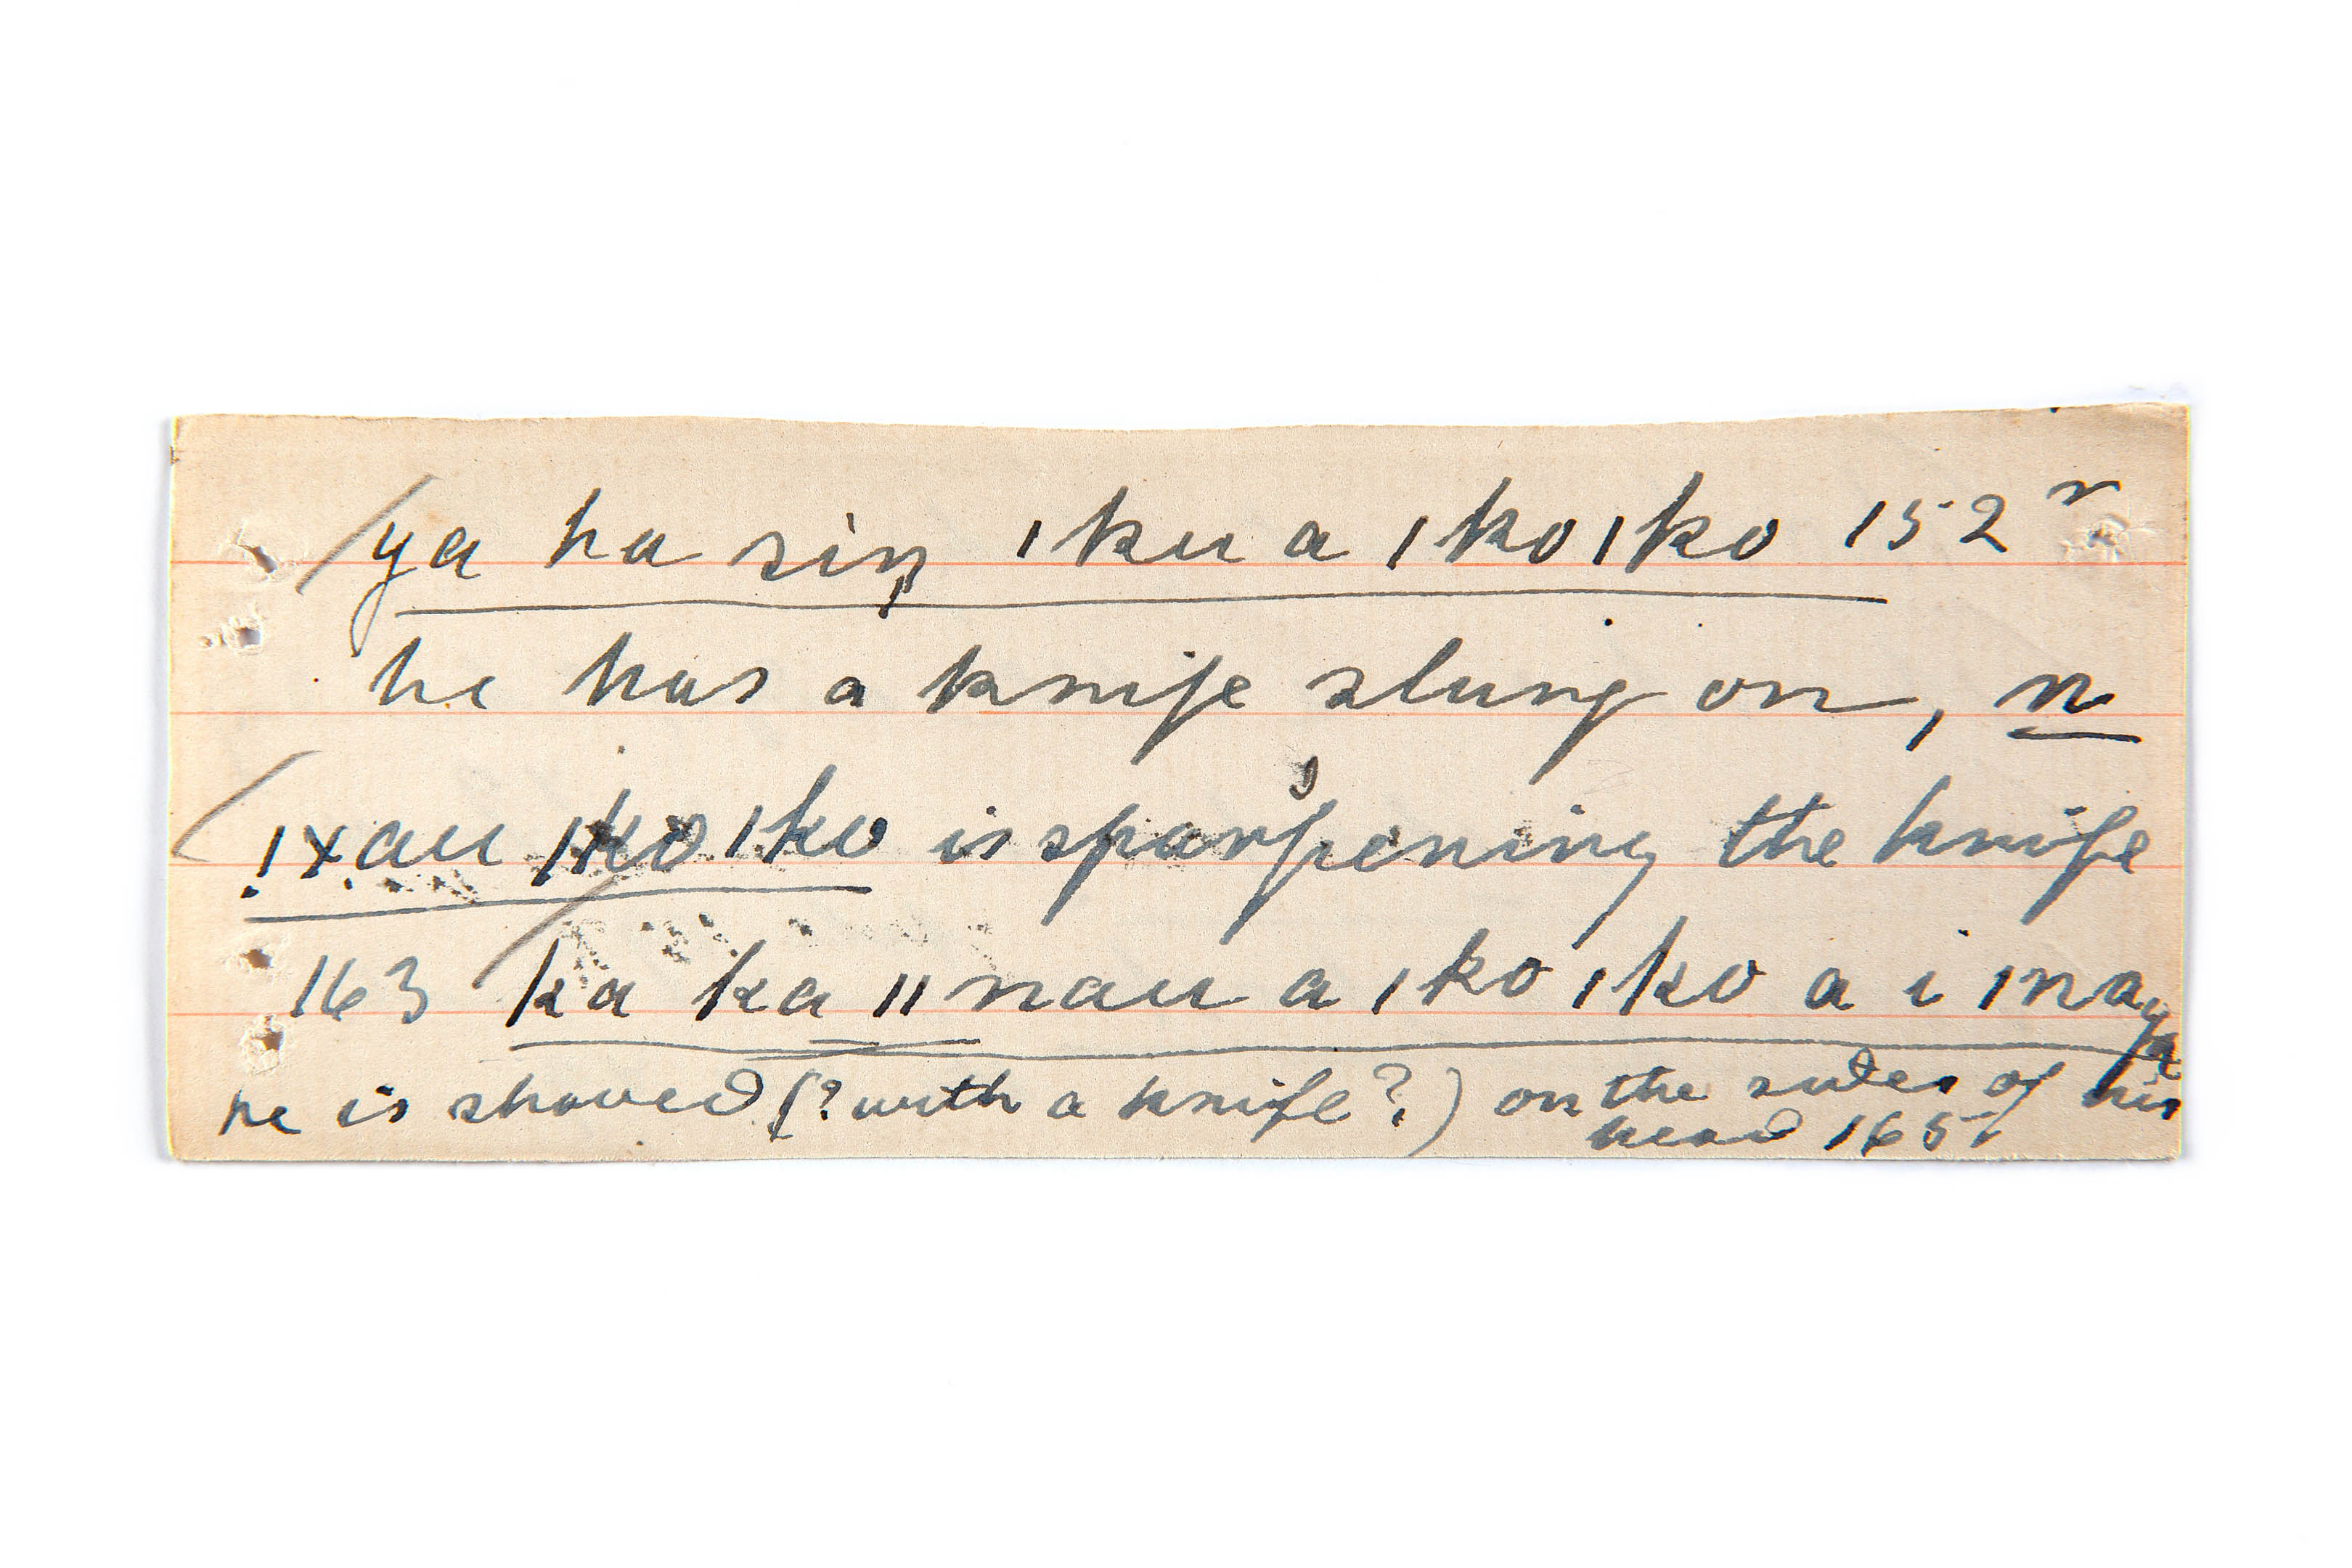 /ya ha siŋ ǀku a ǀkoǀko 152 r
he has a knife slung on, n
/ǃxau ǀkoǀko is sparpening the knife
163 /ka ka ǁnau a ǀko ǀko a i ǀna
he is shaved (? with a knife?) on the sides of his
head 165